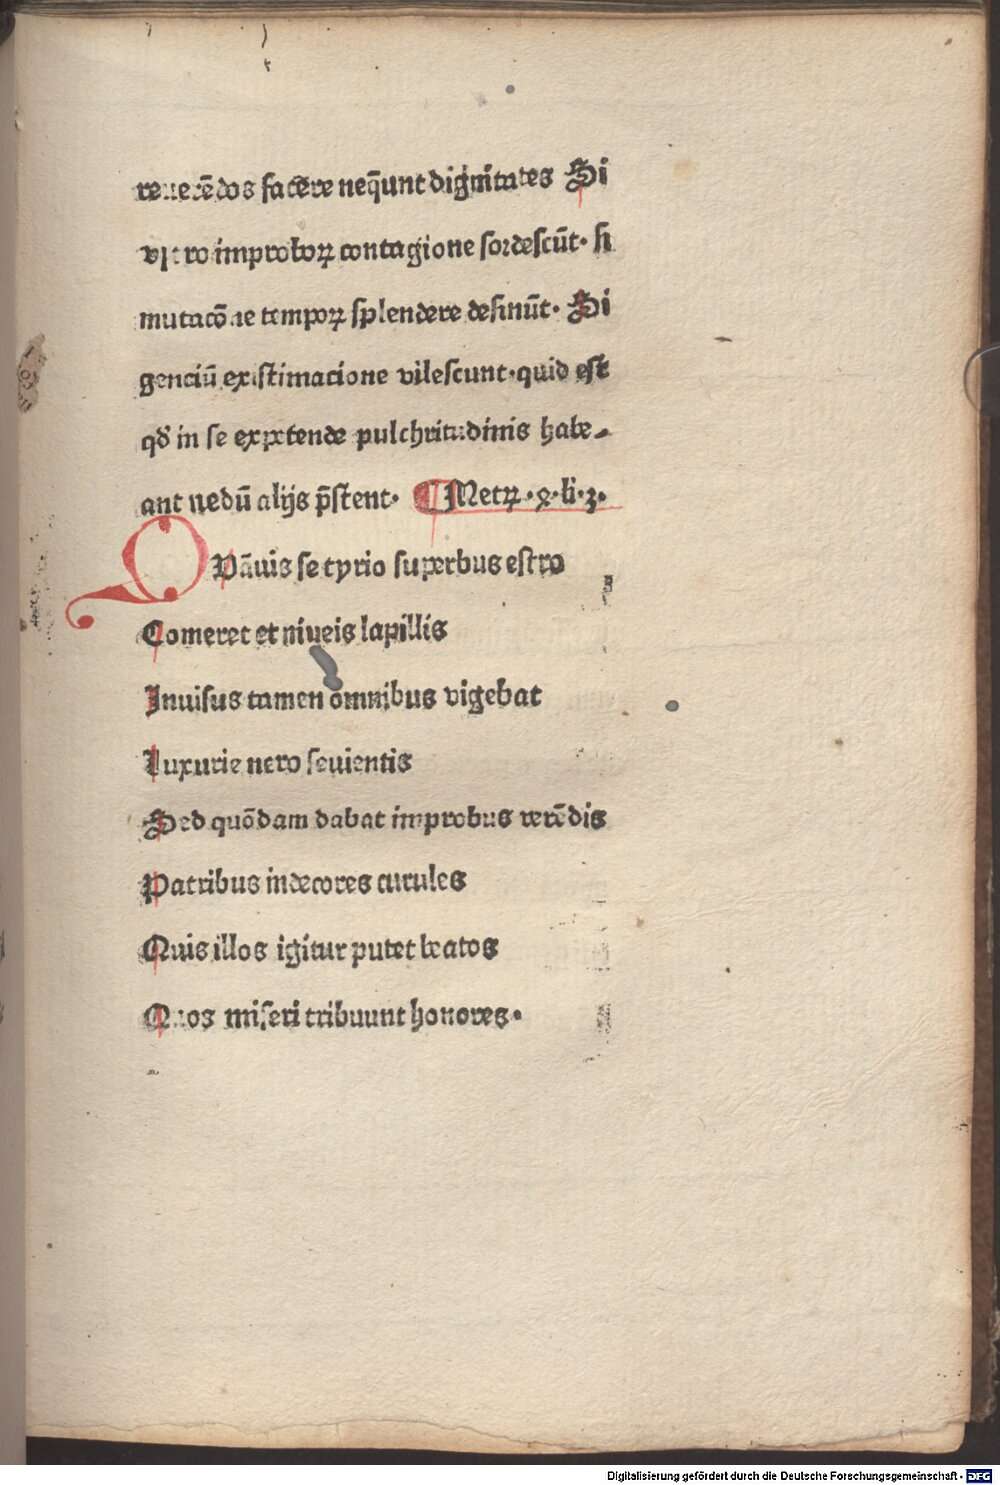 reuerēdos facere neq̄unt dignitates Si
vltro improboꝝ contagione sordescūt· si
mutacōne tempoꝝ splendere desinūt· Si
genciū existimacione vilescunt·quid est
qđ in se expetende pulchritudinis habe-
ant nedū alijs p̄stent· ¶ Metꝝ ·4·li·3·
Qvāuis se tyrio superbus estro
Comeret et niueis lapillis
Inuisus tamen omnibus vigebat
Luxurie nero seuientis
Sed quōdam dabat improbus rerēdis
Patribus indecores curules
Quis illos igitur putet beatos
Quos miseri tribuunt honores·
Digitalisierung gefördert durch die Deutsche Forschungsgemeinschaft - DFG